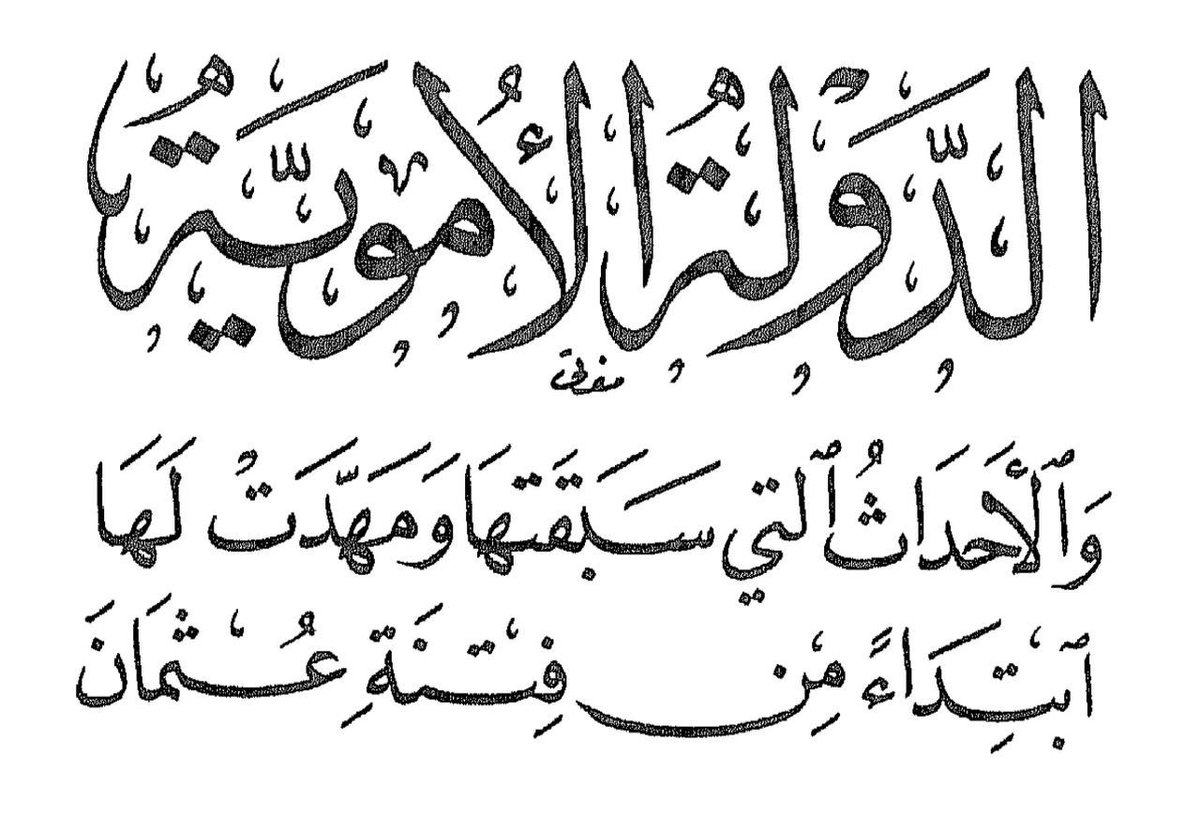 الدَّوْلَةُ الأُمَوِيَّةُ
وَٱلأَحْدَاثُ ٱلَّتِي سَبَقَتْهَا وَمَهَّدَتْ لَهَا
ٱبْتِدَاءً مِنْ فِتْنَةِ عُثْمَانَ